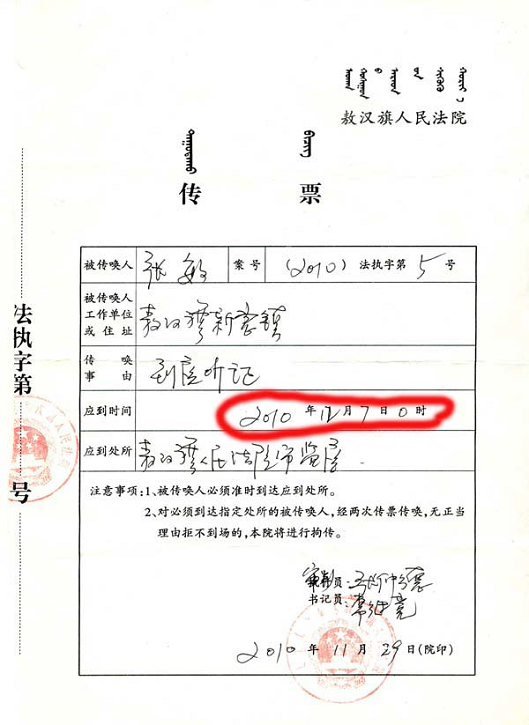 敖汉旗人民法院
传 票
被传唤人 张敏 案号 (2010) 法执字第 5 号
被传唤人
工作单位
或住址
敖汉旗新惠镇
传唤
事由
到庭听证
应到时间 2010 年 12 月 7 日 0 时
应到处所 敖汉旗人民法院审监庭.
注意事项:1、被传唤人必须准时到达应到处所。
2、对必须到达指定处所的被传唤人,经两次传票传唤,无正当
理由拒不到场的,本院将进行拘传。
审判员:
书记员:
2010 年 11 月 29 日(院印)
法执字第
号